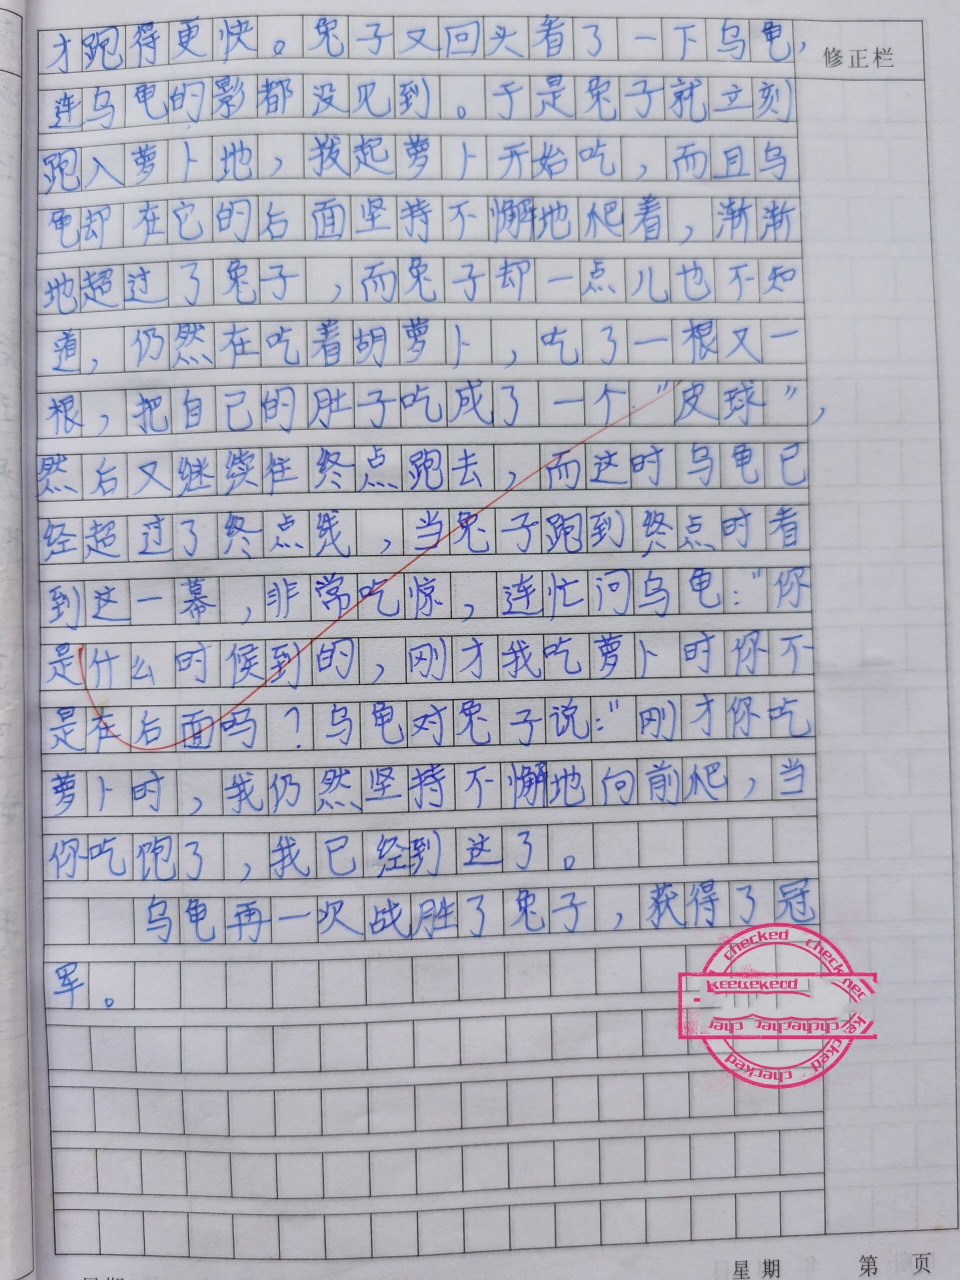 才跑得更快。兔子又回头看了一下乌龟，
修正栏
连乌龟的影都没见到。于是兔子就立刻
跑入萝卜地，拨起萝卜开始吃，而且乌
龟却在它的后面坚持不懈地爬着，渐渐
地超过了兔子，而兔子却一点儿也不知
道，仍然在吃着胡萝卜，吃了一根又一
根，把自己的肚子吃成了一个“皮球”，
然后又继续往终点跑去，而这时乌龟已
经超过了终点线，当兔子跑到终点时看
到这一幕，非常吃惊，连忙问乌龟：“你
是什么时候到的，刚才我吃萝卜时你不
是在后面吗？乌龟对兔子说：“刚才你吃
萝卜时，我仍然坚持不懈地向前爬，当
你吃饱了，我已经到这了。
乌龟再一次战胜了兔子，获得了冠
军。
checked
checked
checked
星期 第 页